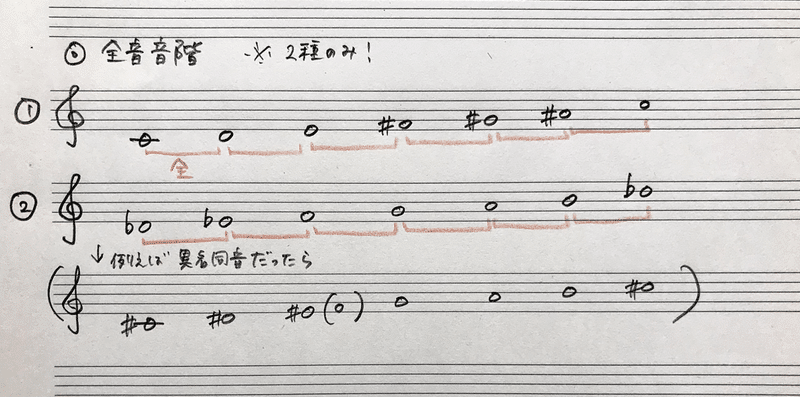 ◎ 全音音階 ※ 2種のみ!
①
全
②
↓ 例えば 異名同音だったら